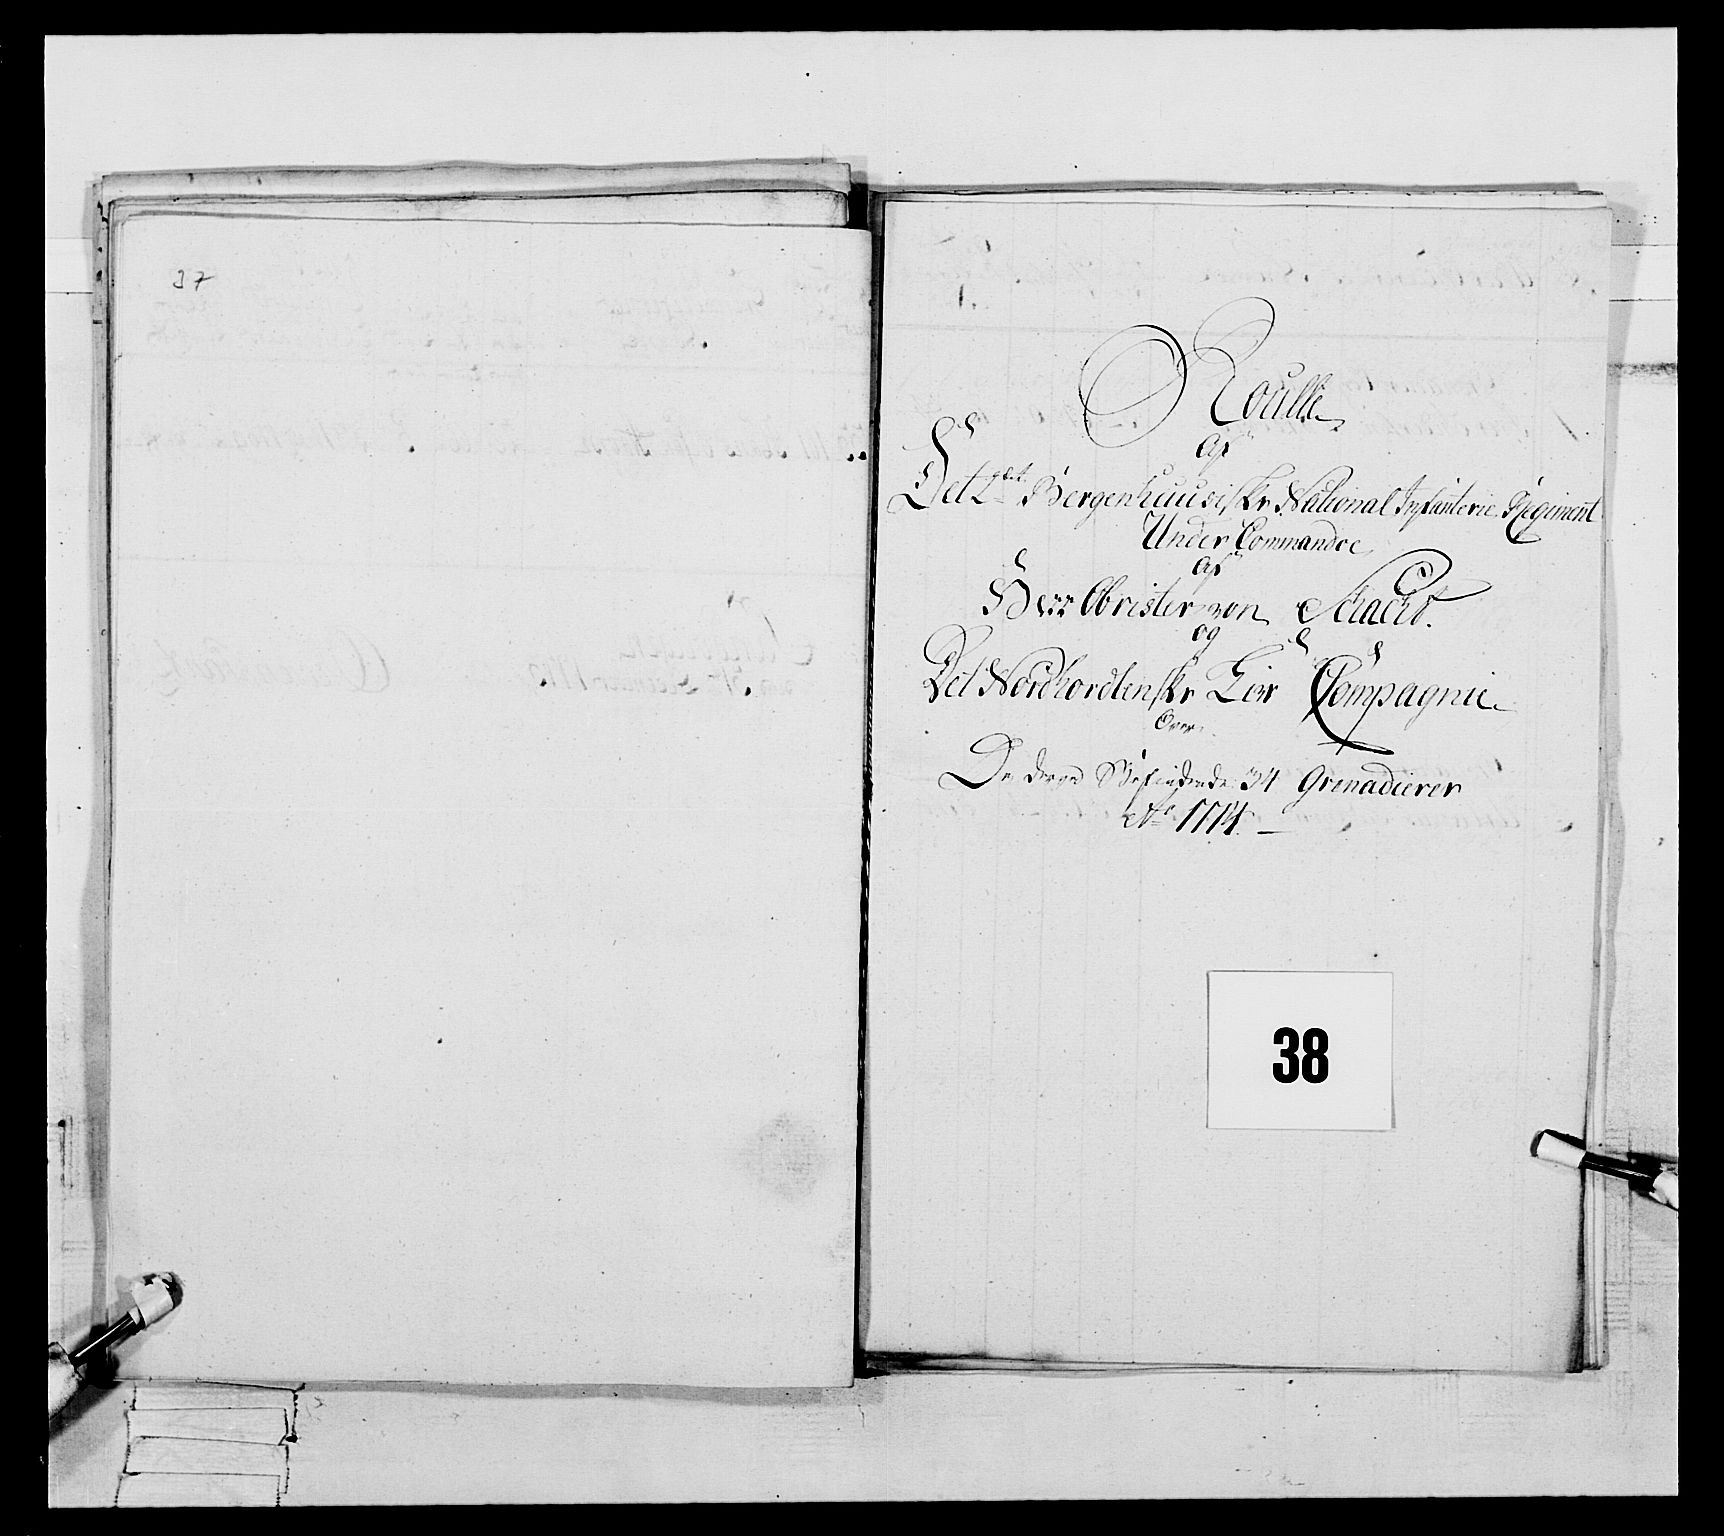 37
Roulle
Af
Det 2det Bergenhuusiske National Infanterie Regiment
Under Commandoe
Af
Herr Obrister von Schacht.
og
Det Nordhordlenske Liv Compagnie
Over
De derved Befindende 34 Grenadierer
Ao 1774.
38